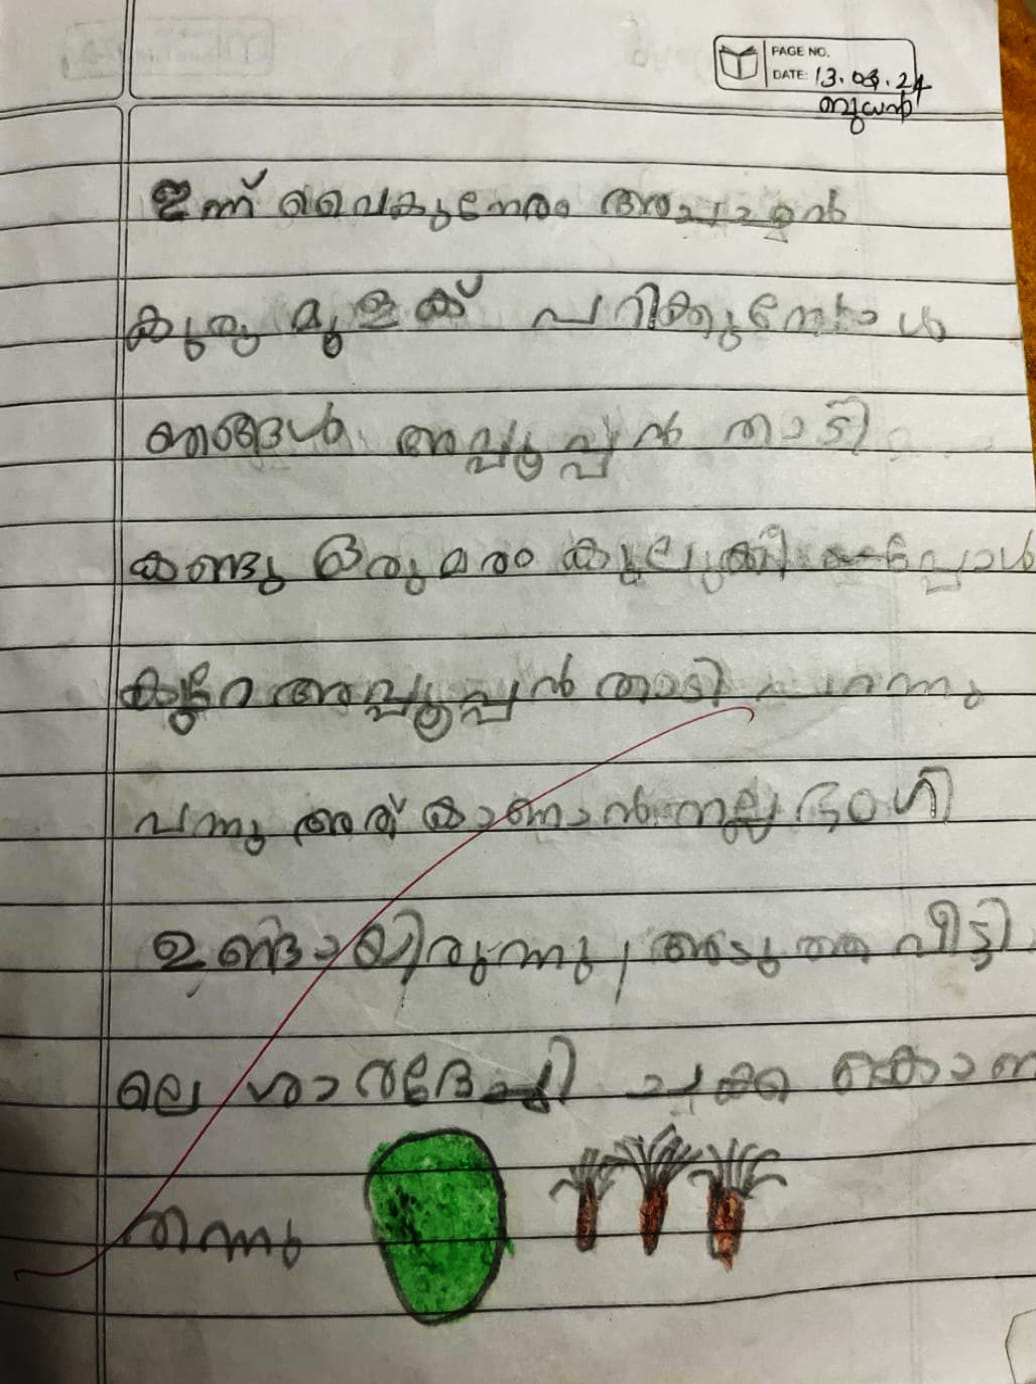 PAGE NO.
DATE: 13.03.24
ബുധൻ
ഇന്ന് വൈകുന്നേരം
കുരുമുളക് പറിക്കുമ്പോൾ
ഞങ്ങൾ അപ്പൂപ്പൻ താടി
കണ്ടു ഒരു മരം കുലുക്കി
കുറേ അപ്പൂപ്പൻ താടി പറന്നു
വന്നു അത് കാണാൻ നല്ല ഭംഗി
ഉണ്ടായിരുന്നു, അടുത്ത വീട്ടി
ലെ ചക്ക കൊണ്ട
തന്നു